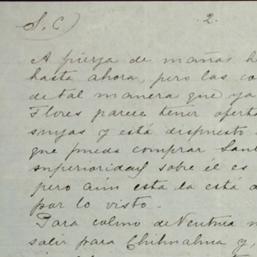 S. C) 2.
A fuerza de mañas h
hasta ahora, pero las co
de tal manera que ya
Flores parece tener oferta
suyas y está dispuesto
que pueda comprar Sant
superioridad sobre él es
pero aún esta la está a
por lo visto.
Para colmo de Ventura
salir para Chihuahua y,